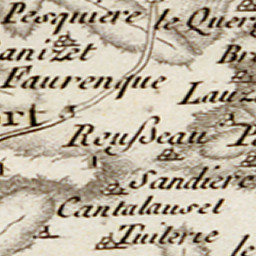 Pesquiere le Querg
anizet Br
Faurenque
Lauz
ort
Rousseau Pa
Sandiere
Cantalauset
Tuilerie le